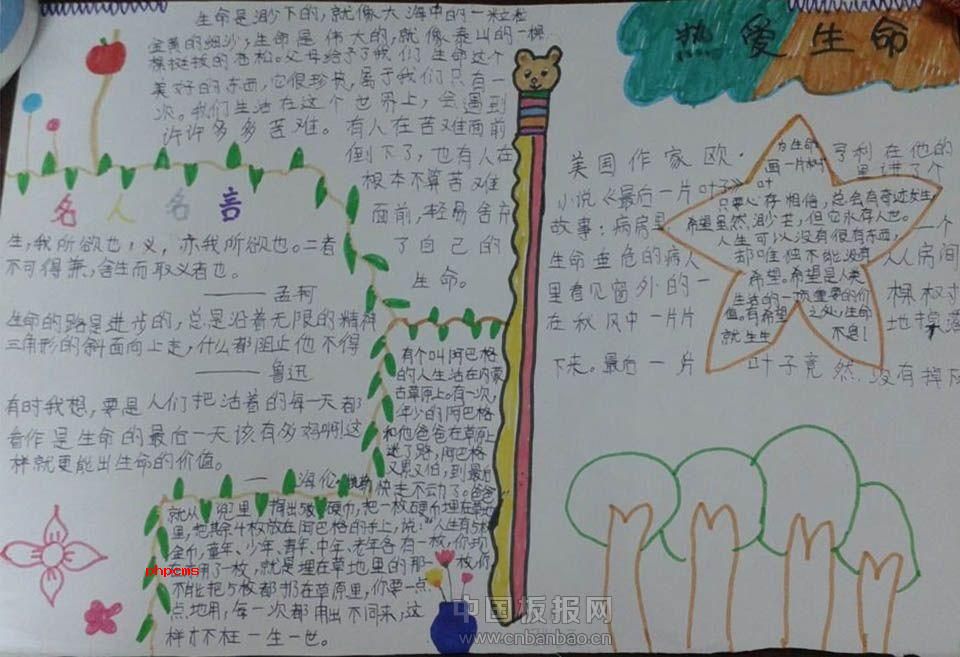 热爱生命
生命是渺下的，就像大海中的一粒粒
金黄的细沙，生命是伟大的，就像泰山的一棵
棵挺拔的苍松。父母给予了我们生命这个
美好的东西，它很珍贵，属于我们只有一
次。我们生活在这个世界上，会遇到
许许多多苦难。有人在苦难面前
倒下了，也有人在
根本不算苦难
面前，轻易舍弃
了自己的
生命。
名人名言
生，我所欲也；义，亦我所欲也。二者
不可得兼，舍生而取义者也。
——孟柯
生命的路是进步的，总是沿着无限的精神
三角形的斜面向上走，什么都阻止他不得
——鲁迅
有时我想，要是人们把活着的每一天都
看作是生命的最后一天该有多好啊！这
样就更能出生命的价值。
—海伦·凯勒
有个叫阿巴格
的人生活在内蒙
古草原上。有一次，
年少的阿巴格
和他爸爸在草原上
迷了路，阿巴格
又累又怕，到最后
快走不动了。爸爸
就从兜里掏出5枚硬币，把一枚硬币埋在草地
里，把其余4枚放在阿巴格的手上，说：“人生有5枚
金币，童年、少年、青年、中年、老年各有一枚，你现
在用了一枚，就是埋在草地里的那一枚，你
不能把5枚都扔在草原里，你要一点
点地用，每一次都用出不同来，这
样才不枉一生一世。
美国作家欧·亨利在他的
小说《最后一片叶子》里讲了个
故事：病房里，一个
生命垂危的病人从房间
里看见窗外的一棵树
在秋风中一片片地掉落
下来。最后一片叶子竟然没有掉
为生命
画一片树
叶
只要心存相信，总会有奇迹发生
希望虽然渺茫，但它永存人世。
人生可以没有很有东西，
却唯独不能没有
希望。希望是人类
生活的一项重要的价
值。有希望之处，生命
就生生不息！
phpcms
中国板报网
www.cnbanbao.cn